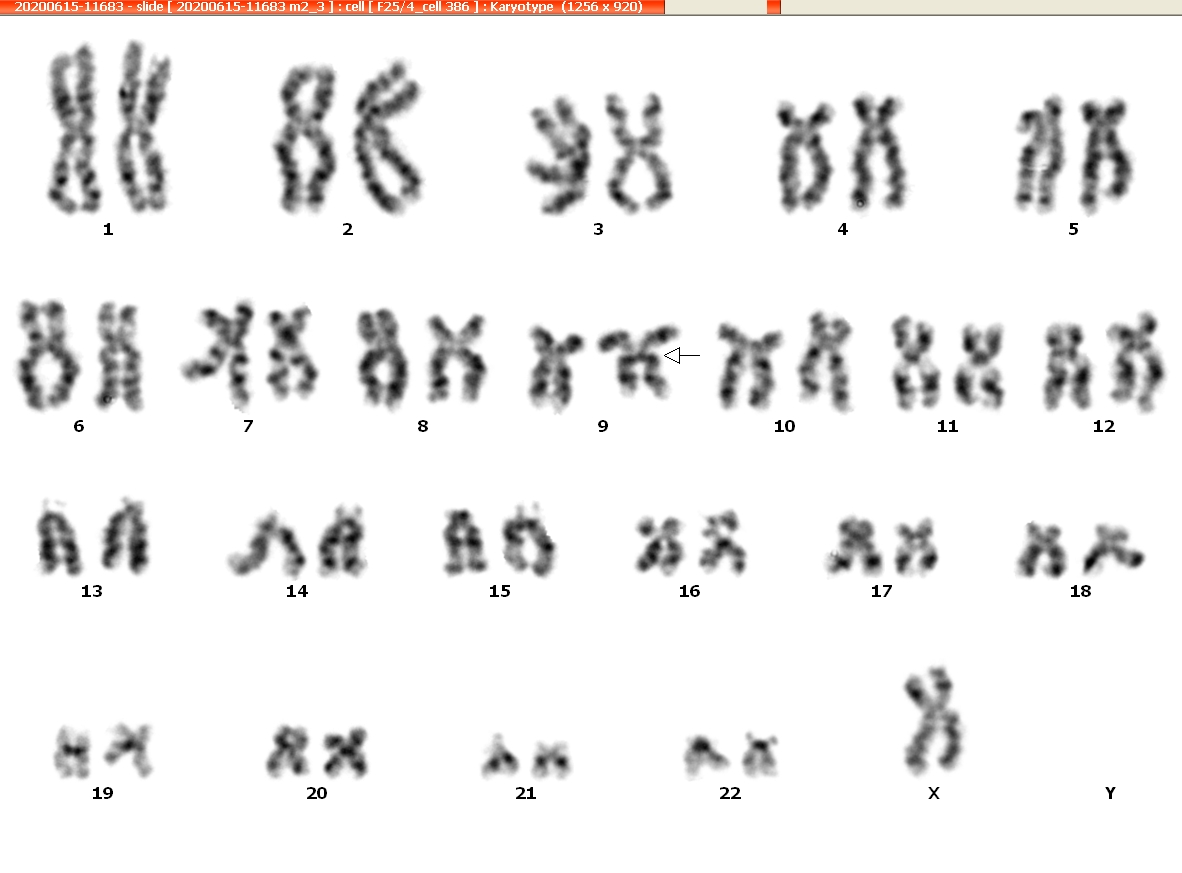 20200615-11683 - slide [ 20200615-11683 m2_3 ] : cell [ F25/4_cell 386 ] : Karyotype (1256 x 920)
1 2 3 4 5
6 7 8 9 10 11 12
13 14 15 16 17 18
19 20 21 22 X Y